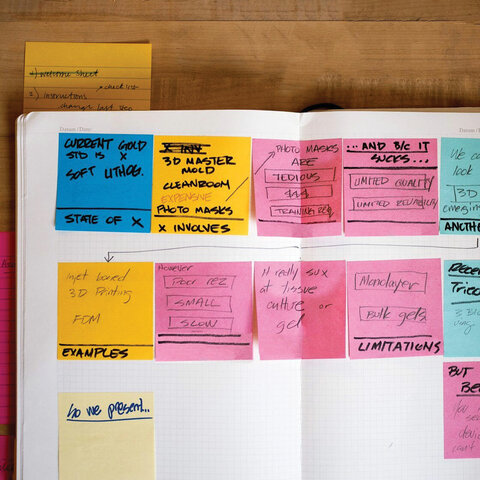 1) Welcome Sheet
• check list
2) Instructions
change last step
Datum / Date:
CURRENT GOLD
STD IS X
SOFT LITHOG.
STATE OF X
X INV
3D MASTER
MOLD
CLEANROOM
EXPENSIVE
PHOTO MASKS
X INVOLVES
PHOTO MASKS
ARE
TEDIOUS
$$$
TRAINING REQ
...AND B/C IT
SUCKS...
LIMITED QUALITY
LIMITED RELIABILITY
We c
look
3D
emergin
ANOTHE
Inkjet based
3D Printing
FDM
EXAMPLES
However
Poor rez
SMALL
SLOW
It really sux
at tissue
culture or
gel
Monolayer
Bulk gels
LIMITATIONS
Recen
Tried
3 B
BUT
BE
So we present...